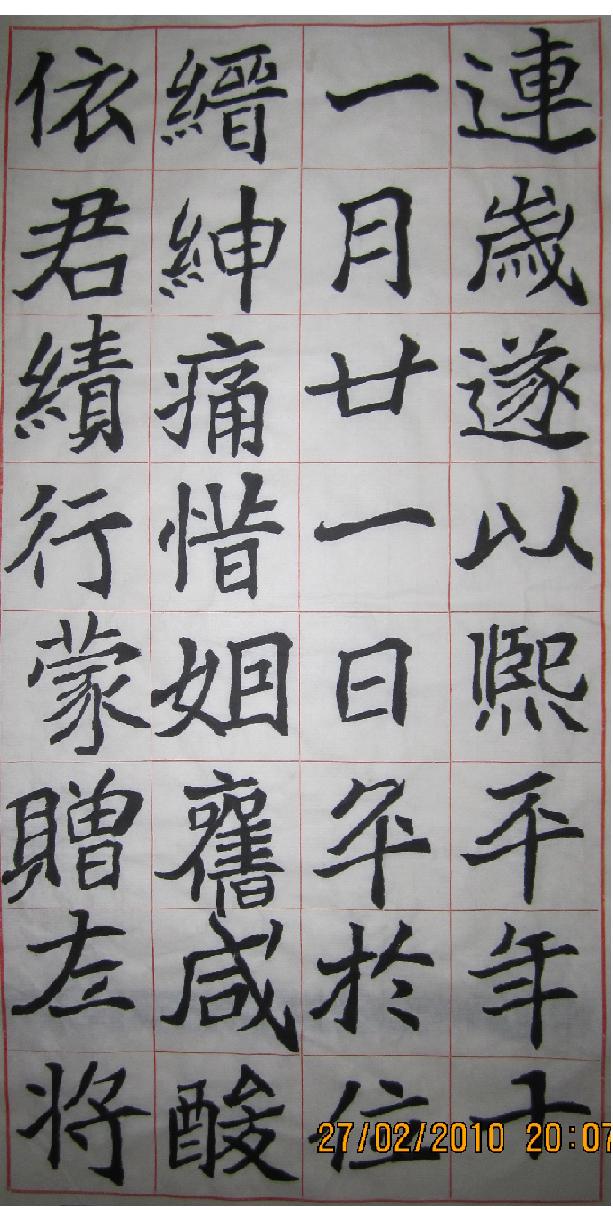 連歲遂以熙平年十
一月廿一日卒於位
縉紳痛惜姻舊咸酸
依君績行蒙贈左將
27/02/2010 20:07